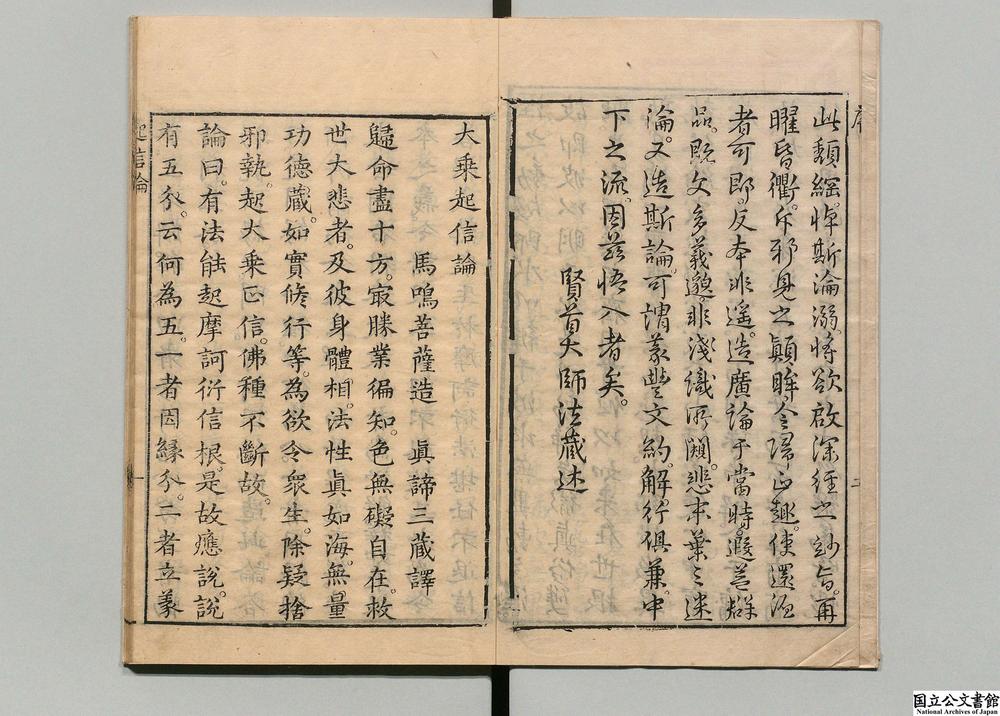 序
此頽綱悼斯淪溺。將欲啟深經之妙旨。再
曜昏衢。斥邪見之顛眸。令歸正趣。使還源
者可即。反本非遥。造廣論于當時。遐益群
品。既文多義邈。非淺識所闚。悲末葉之迷
淪。又造斯論。可謂義豐文約。解行俱兼。中
下之流。因茲悟入者矣。
賢首大師法藏述
二
大乗起信論
馬鳴菩薩造 眞諦三藏譯
歸命盡十方。㝡勝業徧知。色無礙自在。救
世大悲者。及彼身體相。法性眞如海。無量
功德藏。如實修行等。為欲令衆生。除疑捨
邪執。起大乗正信。佛種不斷故。
論曰。有法能起摩訶衍信根。是故應說。說
有五分。云何為五。一者因緣分。二者立義
起信論
一
国立公文書館
National Archives of Japan